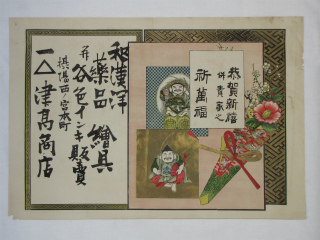 恭賀新禧
併貴家之
祈萬福
和漢洋
藥品 繪具
并各色インキ販賣
摂陽西ノ宮本町
津髙商店